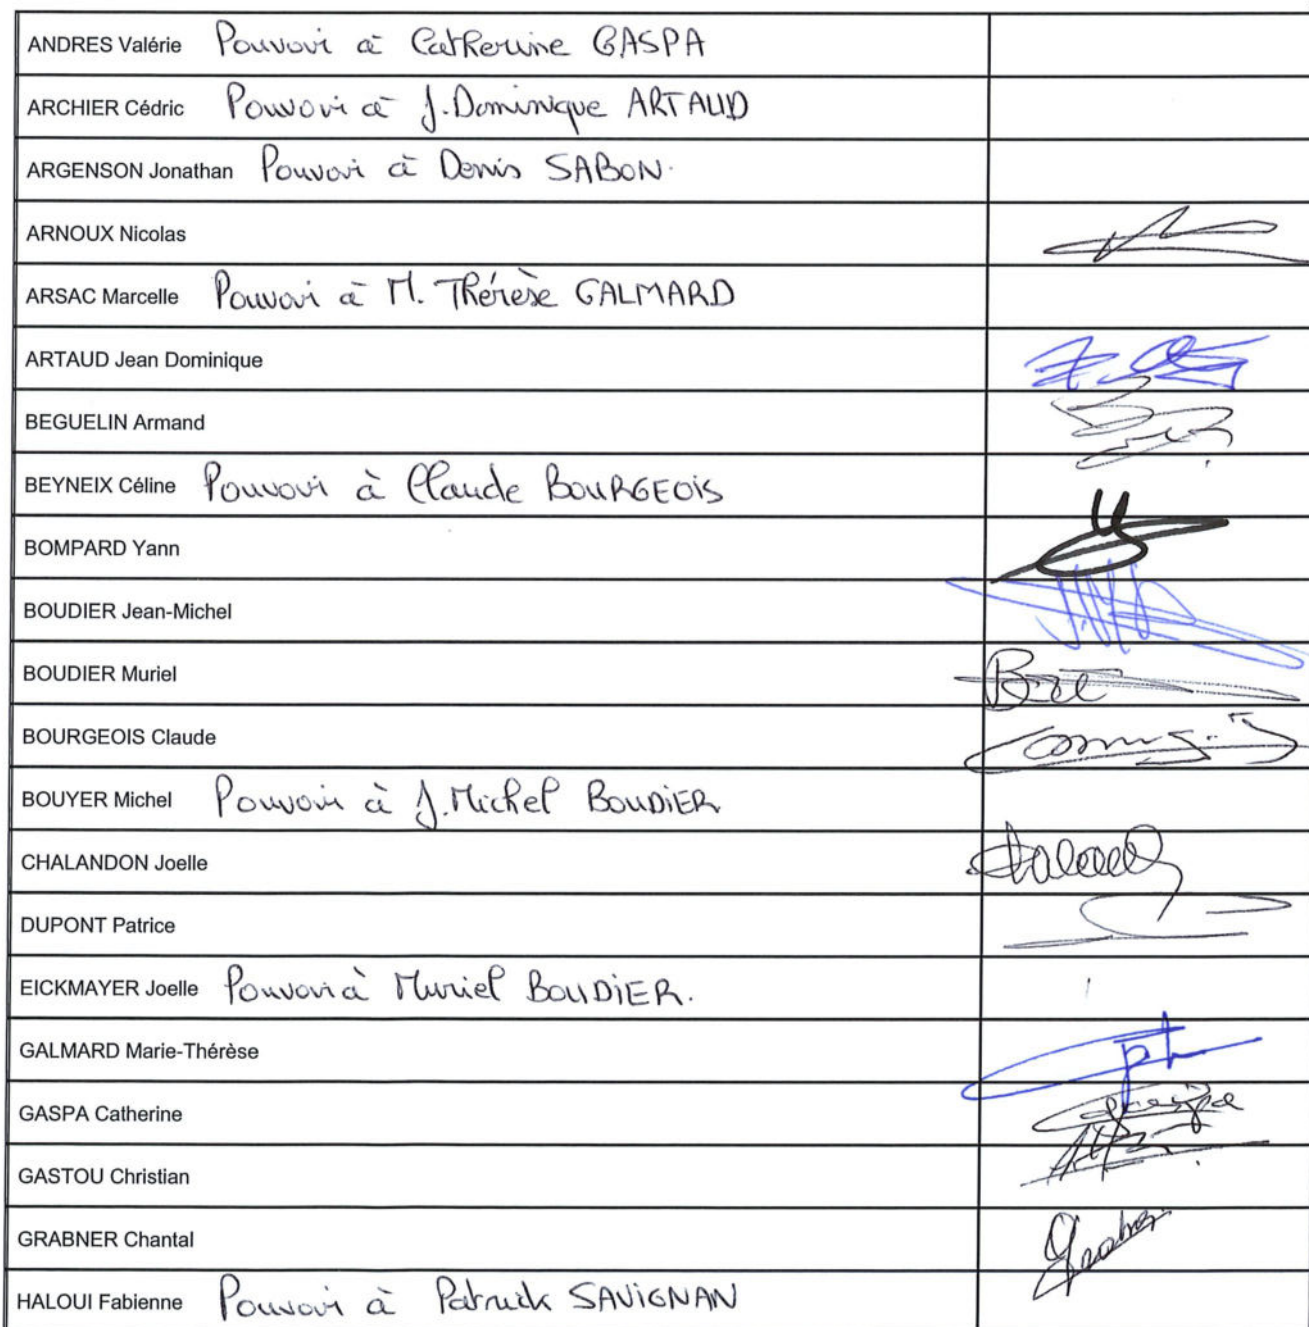 ANDRES Valérie Pouvoir à Catherine GASPA
ARCHIER Cédric Pouvoir à J.Dominique ARTAUD
ARGENSON Jonathan Pouvoir à Denis SABON.
ARNOUX Nicolas
ARSAC Marcelle Pouvoir à M. Thérèse GALMARD
ARTAUD Jean Dominique
BEGUELIN Armand
BEYNEIX Céline Pouvoir à Claude BOURGEOIS
BOMPARD Yann
BOUDIER Jean-Michel
BOUDIER Muriel
BOURGEOIS Claude
BOUYER Michel Pouvoir à J.Michel BOUDIER
CHALANDON Joelle
DUPONT Patrice
EICKMAYER Joelle Pouvoir à Muriel BOUDIER.
GALMARD Marie-Thérèse
GASPA Catherine
GASTOU Christian
GRABNER Chantal
HALOUI Fabienne Pouvoir à Patrick SAVIGNAN